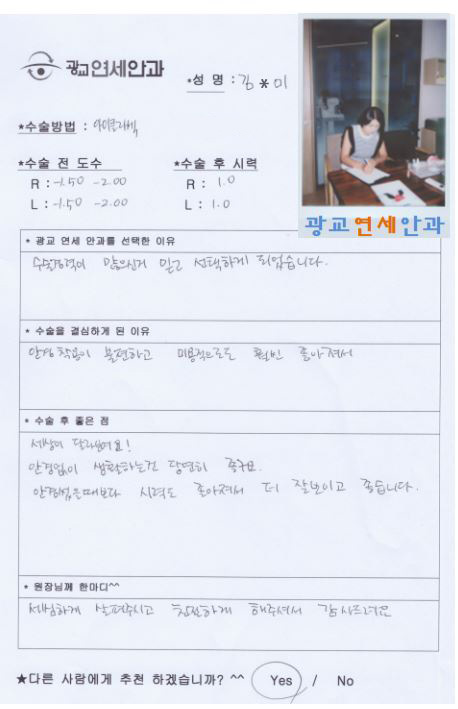 광교연세안과
*성 명 : 김 * 미
*수술방법 :
*수술 전 도수
R : -1.50 -2.00
L : -1.50 -2.00
*수술 후 시력
R : 1.0
L : 1.0
광교연세안과
* 광교 연세 안과를 선택한 이유
수술경력이 많으신거 믿고 선택하게 되었습니다.
* 수술을 결심하게 된 이유
안경착용이 불편하고 미용적으로도 훨씬 좋아져서
* 수술 후 좋은 점
세상이 달라보여요!
안경없이 생활하는건 당연히 좋구요.
안경썼을때보다 시력도 좋아져서 더 잘보이고 좋습니다.
* 원장님께 한마디^^
세심하게 살펴주시고 친절하게 해주셔서 감사드려요
★다른 사람에게 추천 하겠습니까? ^^ Yes / No